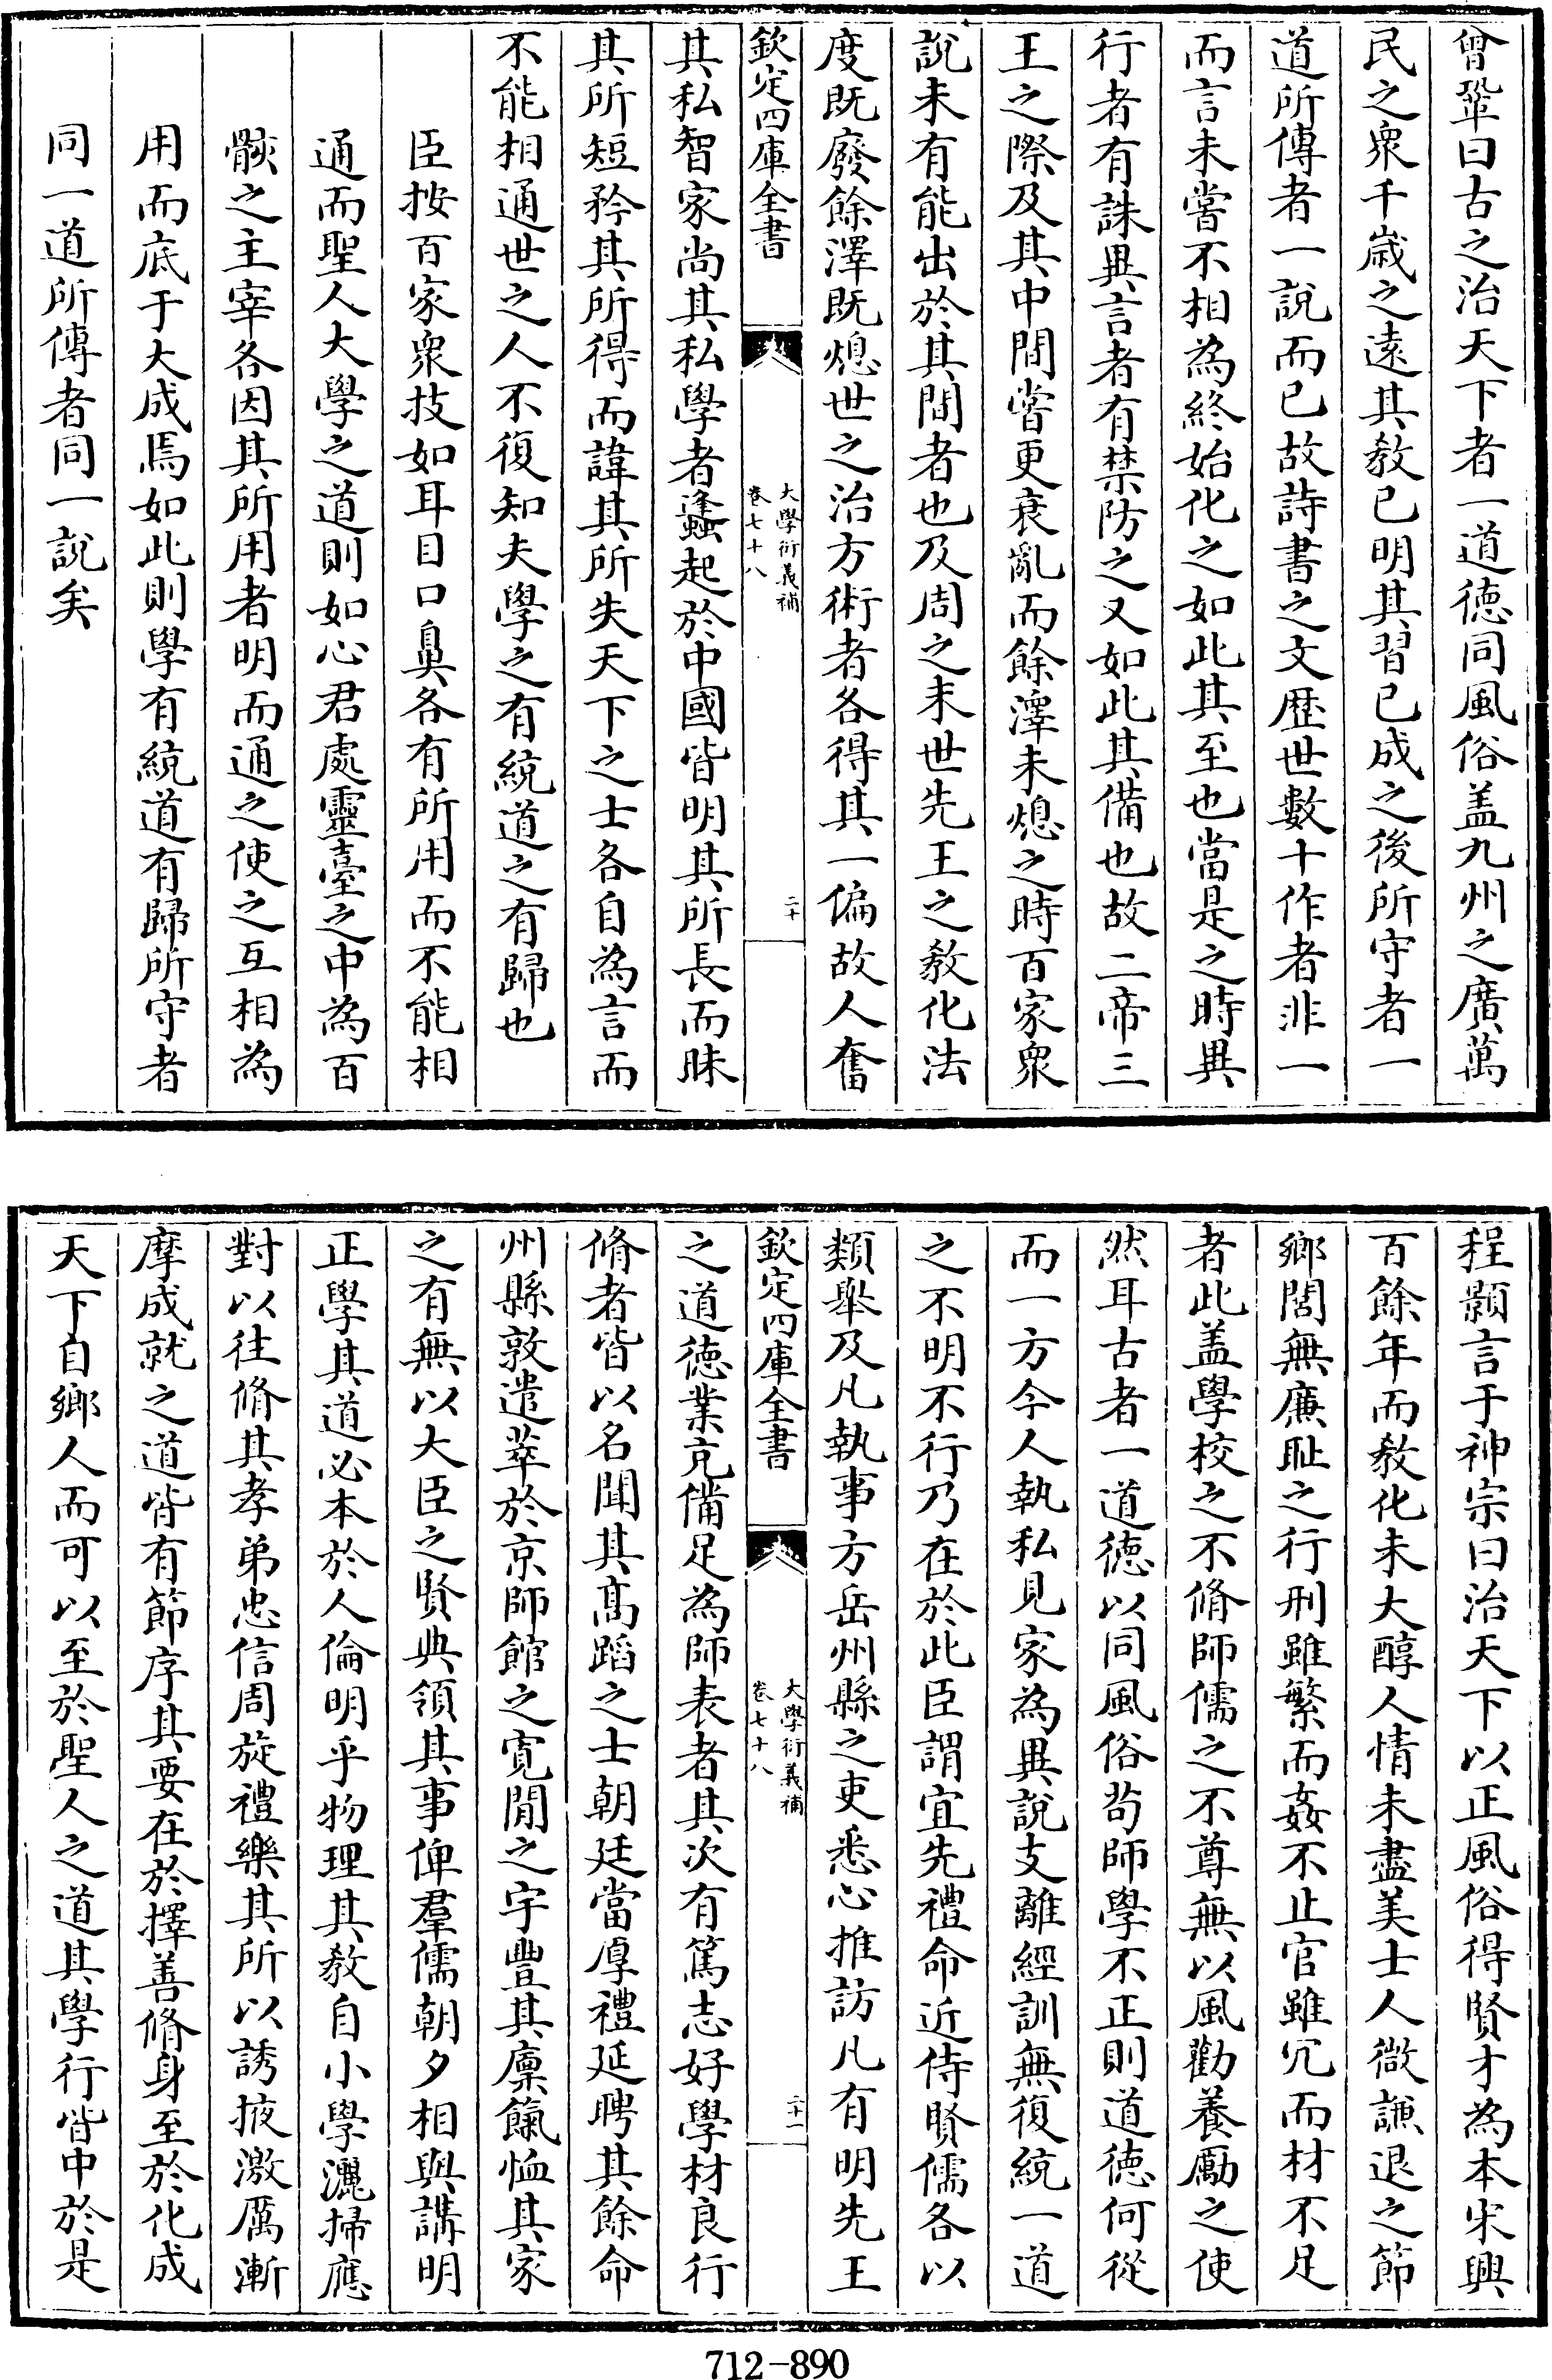 曾鞏曰古之治天下者一道德同風俗盖九州之廣萬
民之衆千嵗之遠其教已明其習已成之後所守者一
道所傳者一說而已故詩書之文歴世數十作者非一
而言未嘗不相為終始化之如此其至也當是之時異
行者有誅異言者有禁防之又如此其備也故二帝三
王之際及其中間嘗更衰亂而餘澤未熄之時百家衆
說未有能出於其間者也及周之末世先王之教化法
度既廢餘澤既熄世之治方術者各得其一偏故人奮
欽定四庫全書
大學衍義補
卷七十八
二十
其私智家尚其私學者蠭起於中國皆明其所長而昧
其所短矜其所得而諱其所失天下之士各自為言而
不能相通世之人不復知夫學之有統道之有歸也
臣按百家衆技如耳目口鼻各有所用而不能相
通而聖人大學之道則如心君處靈臺之中為百
骸之主宰各因其所用者明而通之使之互相為
用而底于大成焉如此則學有統道有歸所守者
同一道所傳者同一說矣
程顥言于神宗曰治天下以正風俗得賢才為本宋興
百餘年而教化未大醇人情未盡美士人微謙退之節
鄉閭無廉耻之行刑雖繁而姦不止官雖冗而材不足
者此盖學校之不脩師儒之不尊無以風勸養勵之使
然耳古者一道徳以同風俗茍師學不正則道徳何從
而一方今人執私見家為異說支離經訓無復統一道
之不明不行乃在於此臣謂宜先禮命近侍賢儒各以
類舉及凡執事方岳州縣之吏悉心推訪凡有明先王
欽定四庫全書
大學衍義補
卷七十八
二十一
之道徳業充備足為師表者其次有篤志好學材良行
脩者皆以名聞其髙蹈之士朝廷當厚禮延聘其餘命
州縣敦遣萃於京師館之寛閒之宇豐其廪餼恤其家
之有無以大臣之賢典領其事俾羣儒朝夕相與講明
正學其道必本於人倫明乎物理其教自小學灑掃應
對以往脩其孝弟忠信周旋禮樂其所以誘掖激厲漸
摩成就之道皆有節序其要在於擇善脩身至於化成
天下自鄉人而可以至於聖人之道其學行皆中於是
712-890